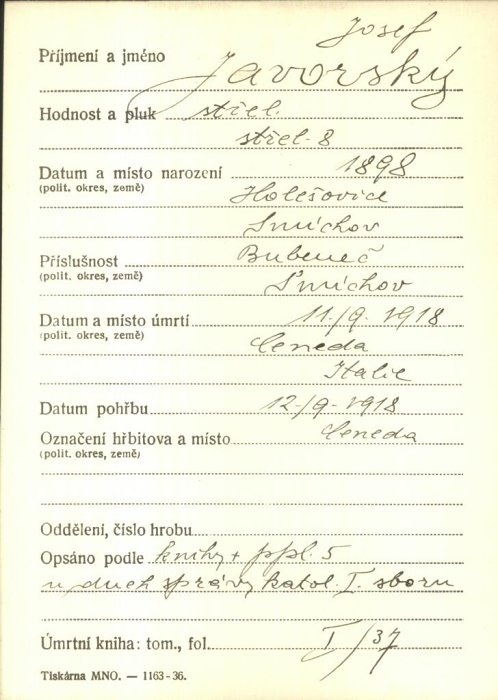 Josef
Příjmení a jméno Javorský
Hodnost a pluk střel.
střel. 8
Datum a místo narození 1898
(polit. okres, země) Holešovice
Smíchov
Příslušnost Bubeneč
(polit. okres, země) Smíchov
Datum a místo úmrtí 11./9. 1918
(polit. okres, země) Ceneda
Italie
Datum pohřbu 12./9. 1918
Označení hřbitova a místo Ceneda
(polit. okres, země)
Oddělení, číslo hrobu
Opsáno podle knihy + ppl. 5
u duch správy katol. I. sboru
Úmrtní kniha: tom., fol. I/37
Tiskárna MNO. — 1163-36.